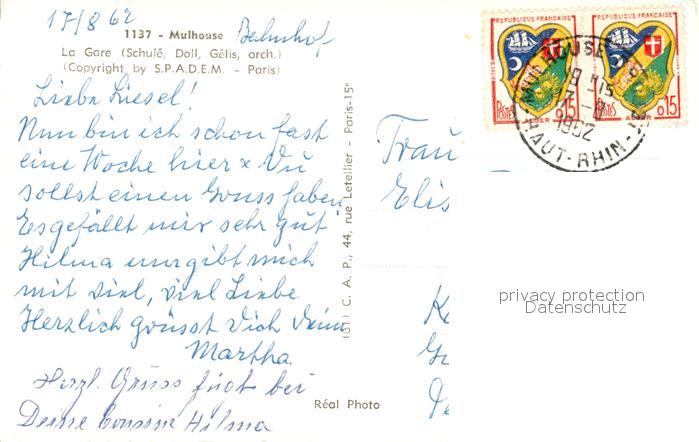 17/8 62
1137 - Mulhouse Bahnhof
La Gare (Schulé, Doll, Gélis, arch.)
(Copyright by S.P.A.D.E.M. - Paris)
Liebe Liesel!
Nun bin ich schon fast
eine Woche hier x Du
sollst einen Gruss haben
Es gefällt mir sehr gut
Hilma umgibt mich
mit viel, viel Liebe
Herzlich grüsst Dich Deine
Martha.
Herzl. Grüsse fügt bei
Deine Cousine Hilma
(61) C. A. P., 44, rue Letellier - Paris-15e
Réal Photo
REPUBLIQUE FRANÇAISE
POSTES 0,15
ALGER
REPUBLIQUE FRANÇAISE
POSTES 0,15
ALGER
MULHOUSE
1962
HAUT-RHIN
Frau
Elis
privacy protection
Datenschutz